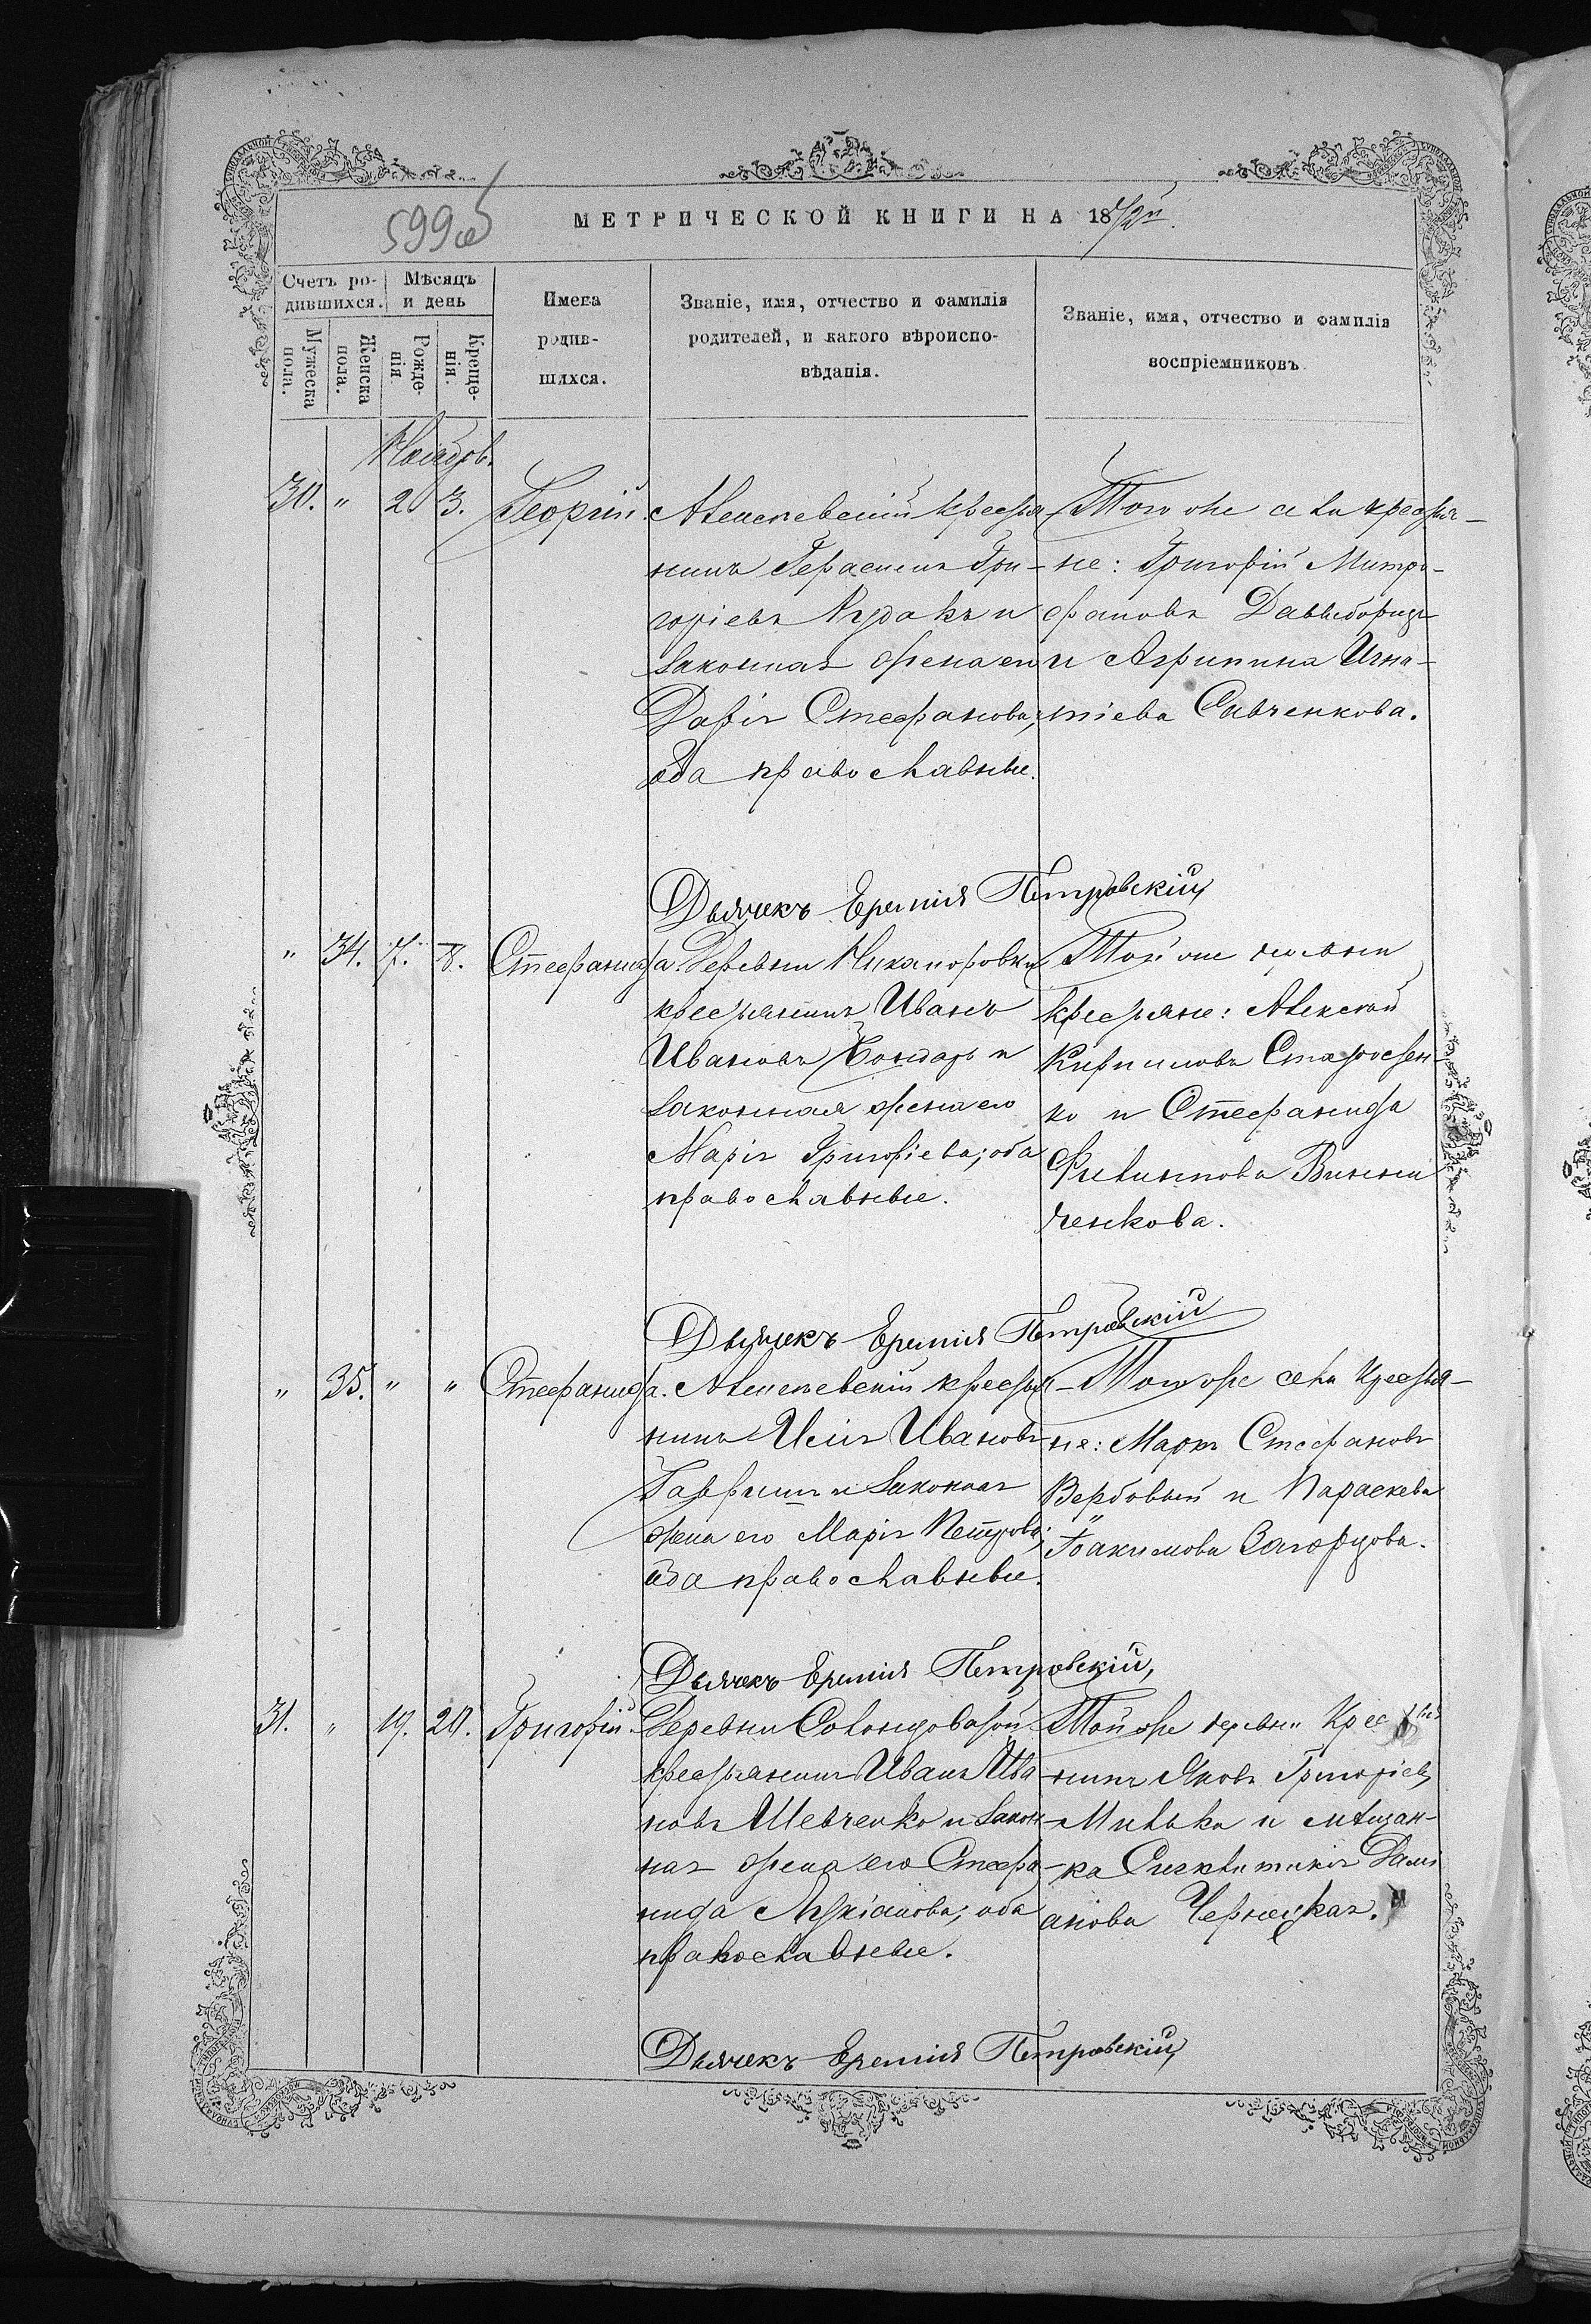 599 об
МЕТРИЧЕСКОЙ КНИГИ НА 1872й.
Счетъ ро-
дившихся.
Мѣсяцъ
и день
Мужеска
пола.
Женска
пола.
Рожде-
нія
Креще-
нія.
Имена
родив-
шихся.
Званіе, имя, отчество и фамилія
родителей, и какого вѣроиспо-
вѣданія.
Званіе, имя, отчество и фамилія
воспріемниковъ
Ноябрь
30. " 2 3. Георгій.
крестья
нинъ Герасимъ Гри-
горіевъ Кудакъ и
законная жена его
Дарія Стефанова;
оба православные.
Того же села крестья-
не: Григорій Митро-
фановъ
и Агрипина Игна-
тіева Савченкова.
Дьячекъ Еремія Петровскій
" 34. 7. 8. Стефанида.
Деревни Никаноровки
крестьянинъ Иванъ
Ивановъ Бондарь и
законная жена его
Марія Григоріева; оба
православные.
Той же деревни
крестьяне: Алексѣй
Кириловъ
ко и Стефанида
Филиппова Винни
ченкова.
Дьячекъ Еремія Петровскій
" 35. " " Стефанида.
крестья-
нинъ Илія Ивановъ
и законная
жена его Марія Петрова;
оба православные.
Того же села крестья-
не: Маркъ Стефановъ
Вербовый и Параскева
Іоакимова
Дьячекъ Еремія Петровскій
31. " 19. 20. Григорій.
Деревни
крестьянинъ Иванъ Ива
новъ Шевченко и закон-
ная жена его Стефа
нида Лукіанова; оба
православные.
Той же деревни крестья
нинъ Яковъ Григоріевъ
Милька и мѣщан-
ка Синклитикія Дамі
анова Чернецкая.
Дьячекъ Еремія Петровскій